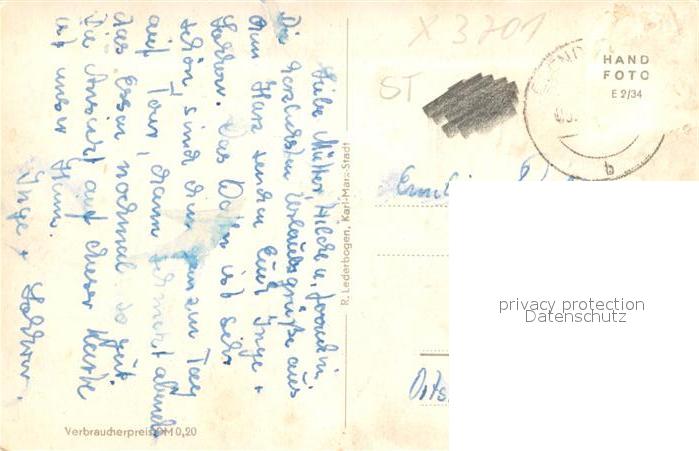 Liebe Mutter, Hilde u. Joachim!
Die herzlichsten Urlaubsgrüße aus
dem Harz senden Euch Inge +
Lothar. Das Wetter ist sehr
schön, sind den ganzen Tag
auf Tour, dann schmeckt abends
das Essen nochmal so gut.
Die Ansicht auf dieser Karte
ist unser Heim.
Inge + Lothar.
R. Lederbogen, Karl-Marx-Stadt
Verbraucherpreis DM 0,20
X 3701
ST
HAND
FOTO
E 2/34
b
privacy protection
Datenschutz